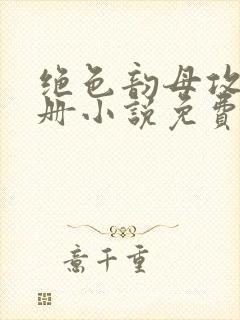 绝色韵母攻
册小说免费
意千重